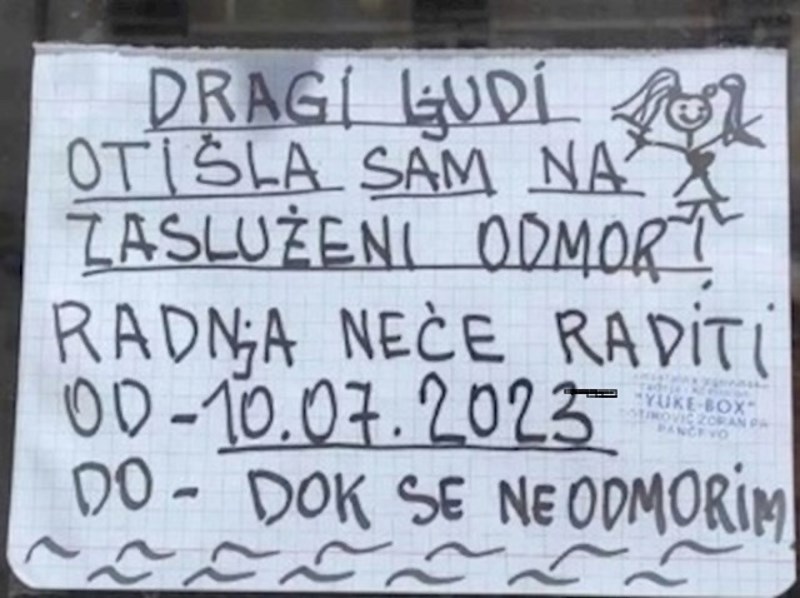 DRAGI LjUDI
OTIŠLA SAM NA
ZASLUŽENI ODMOR!
RADNjA NEĆE RADITI
OD - 10.07.2023
"YUKE-BOX"
ZORAN
PANČEVO
DO - DOK SE NE ODMORIM